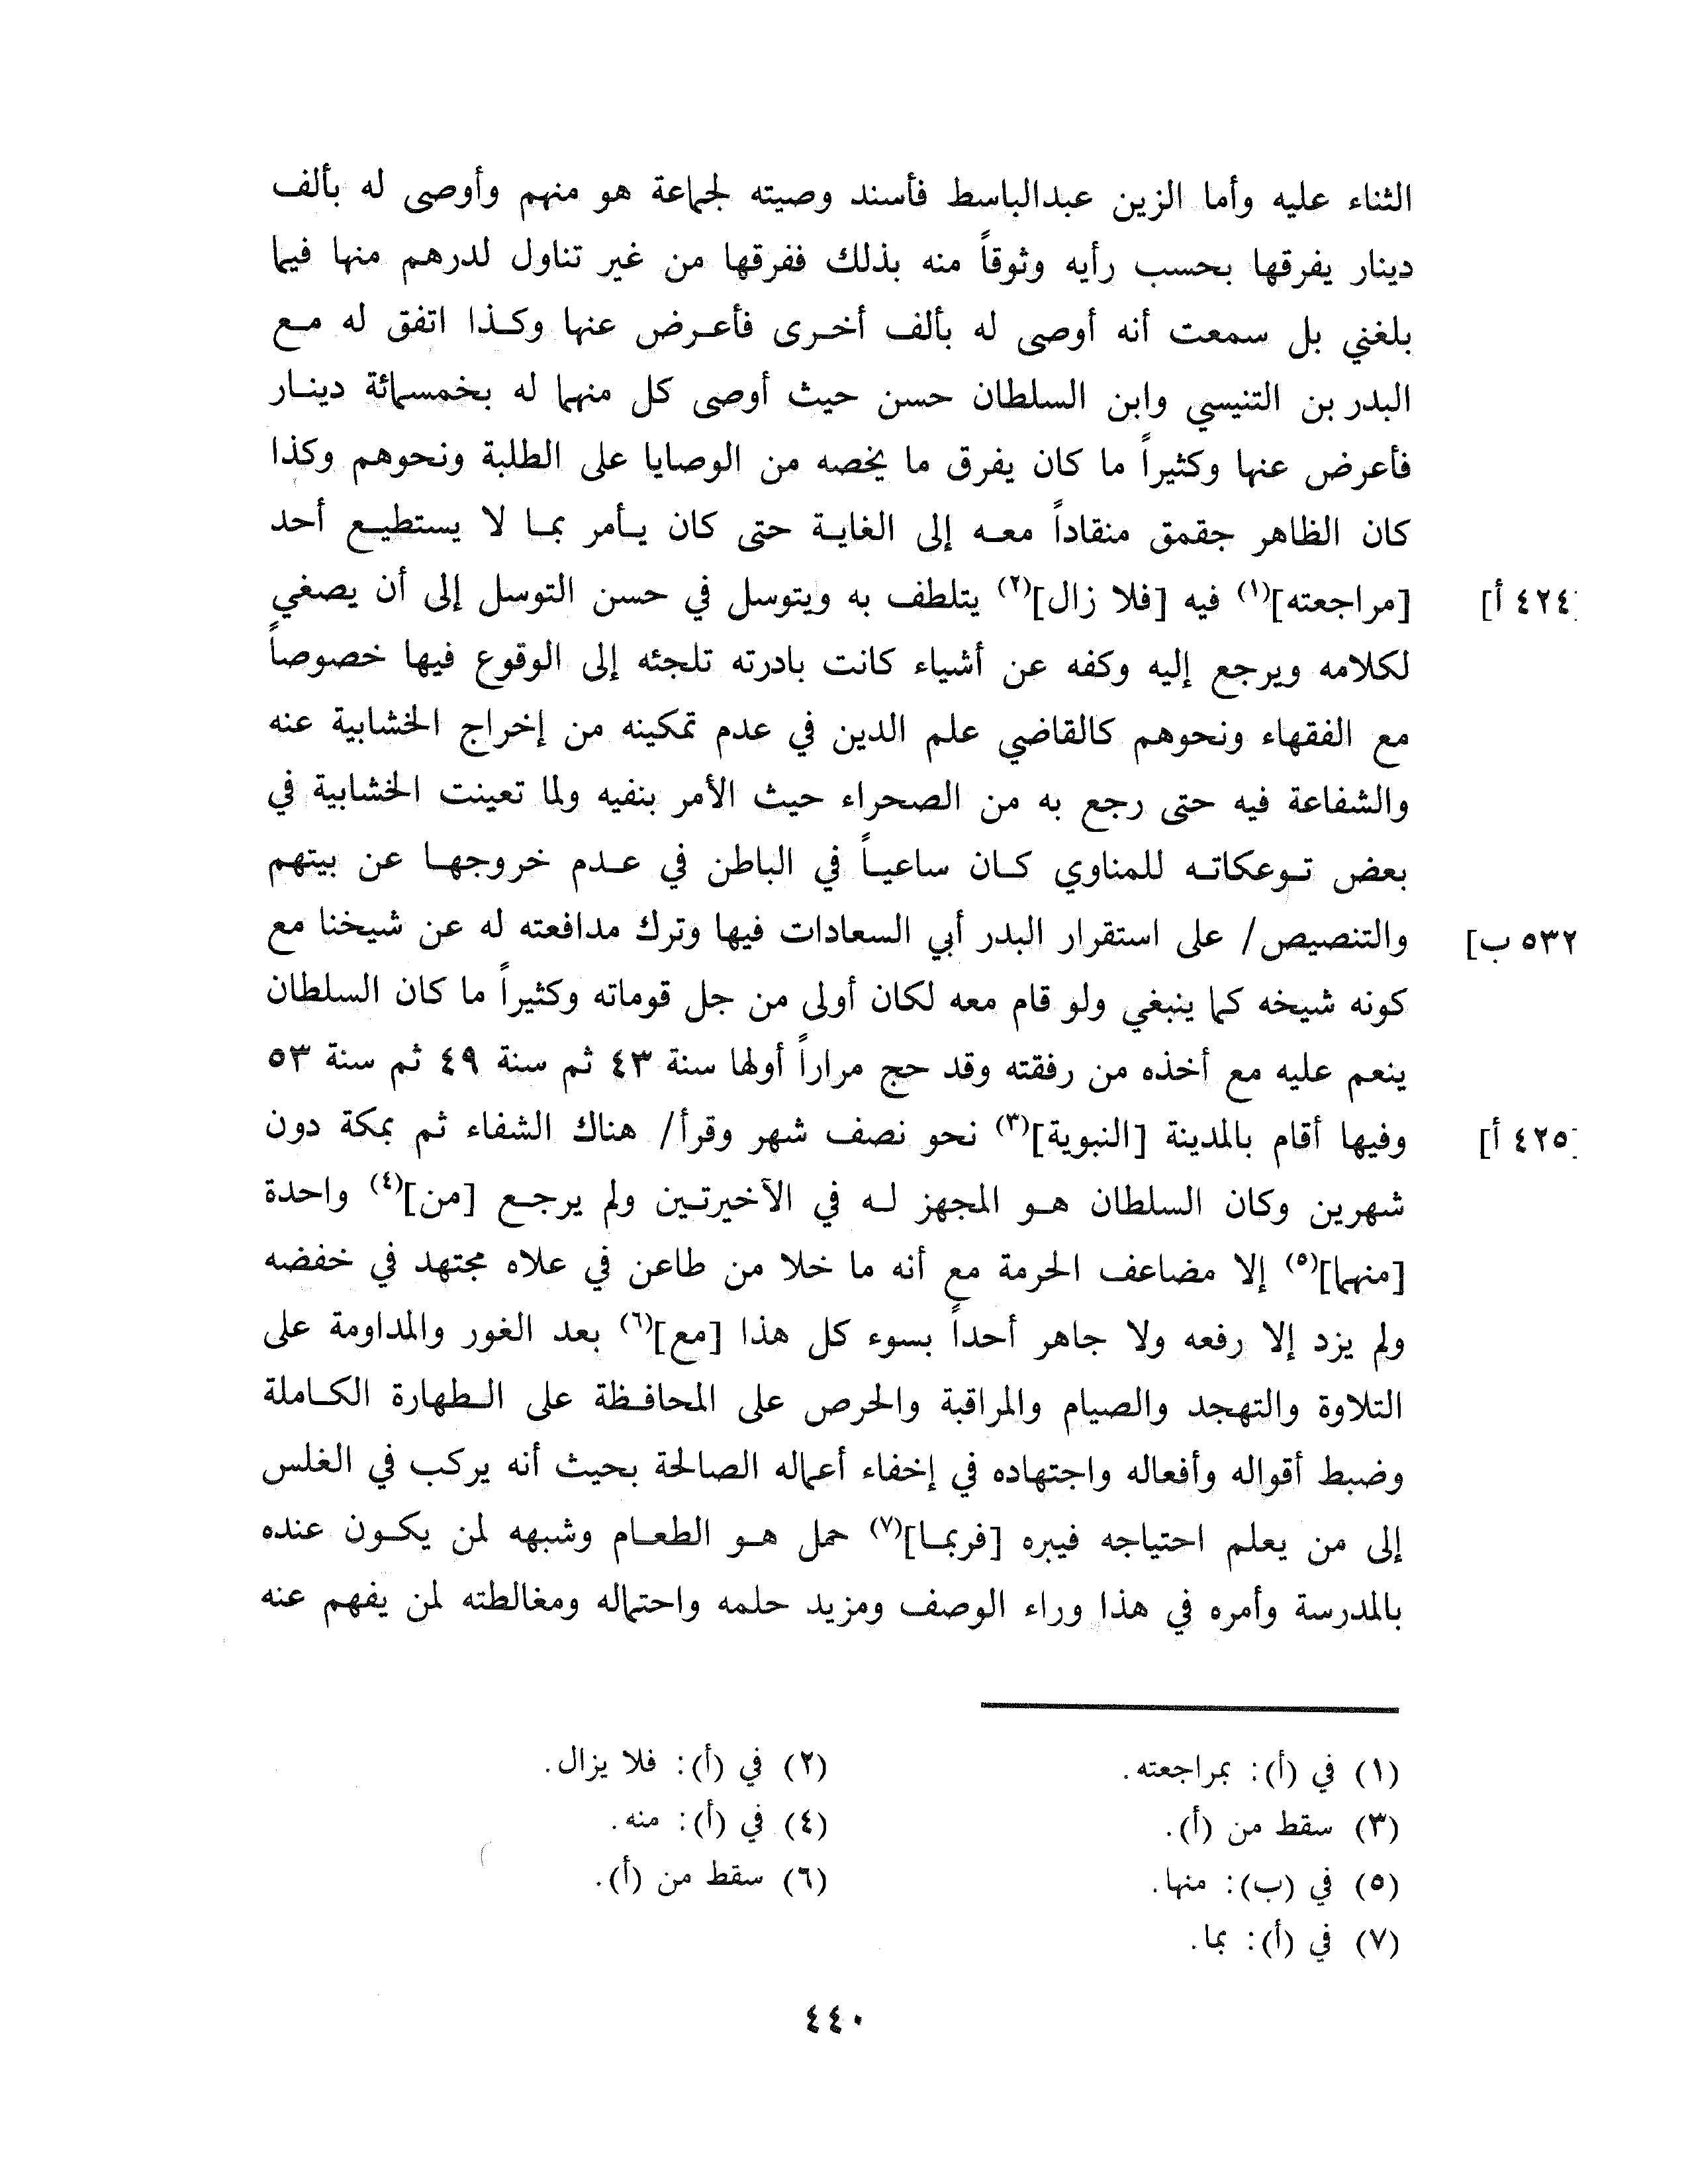 الثناء عليه وأما الزين عبدالباسط فأسند وصيته لجماعة هو منهم وأوصى له بألف
دينار يفرقها بحسب رأيه وثوقاً منه بذلك ففرقها من غير تناول لدرهم منها فيما
بلغني بل سمعت أنه أوصى له بألف أخرى فأعرض عنها وكذا اتفق له مع
البدر بن التنيسي وابن السلطان حسن حيث أوصى كل منهما له بخمسمائة دينار
فأعرض عنها وكثيراً ما كان يفرق ما يخصه من الوصايا على الطلبة ونحوهم وكذا
كان الظاهر جقمق منقاداً معه إلى الغاية حتى كان يأمر بما لا يستطيع أحد
[مراجعته](١) فيه [فلا زال](٢) يتلطف به ويتوسل في حسن التوسل إلى أن يصغي [٤٢٤ أ]
لكلامه ويرجع إليه وكفه عن أشياء كانت بادرته تلجئه إلى الوقوع فيها خصوصاً
مع الفقهاء ونحوهم كالقاضي علم الدين في عدم تمكينه من إخراج الخشابية عنه
والشفاعة فيه حتى رجع به من الصحراء حيث الأمر بنفيه ولما تعينت الخشابية في
بعض توعكاته للمناوي كان ساعياً في الباطن في عدم خروجها عن بيتهم
والتنصيص/ على استقرار البدر أبي السعادات فيها وترك مدافعته له عن شيخنا مع ٥٣٢ ب]
كونه شيخه كما ينبغي ولو قام معه لكان أولى من جل قوماته وكثيراً ما كان السلطان
ينعم عليه مع أخذه من رفقته وقد حج مراراً أولها سنة ٤٣ ثم سنة ٤٩ ثم سنة ٥٣
وفيها أقام بالمدينة [النبوية](٣) نحو نصف شهر وقرأ/ هناك الشفاء ثم بمكة دون [٤٢٥ أ]
شهرين وكان السلطان هو المجهز له في الآخيرتين ولم يرجع [من](٤) واحدة
[منهما](٥) إلا مضاعف الحرمة مع أنه ما خلا من طاعن في علاه مجتهد في خفضه
ولم يزد إلا رفعه ولا جاهر أحداً بسوء كل هذا [مع](٦) بعد الغور والمداومة على
التلاوة والتهجد والصيام والمراقبة والحرص على المحافظة على الطهارة الكاملة
وضبط أقواله وأفعاله واجتهاده في إخفاء أعماله الصالحة بحيث أنه يركب في الغلس
إلى من يعلم احتياجه فيبره [فربما](٧) حمل هو الطعام وشبهه لمن يكون عنده
بالمدرسة وأمره في هذا وراء الوصف ومزيد حلمه واحتماله ومغالطته لمن يفهم عنه
(١) في (أ): بمراجعته.
(٢) في (أ): فلا يزال.
(٣) سقط من (أ).
(٤) في (أ): منه.
(٥) في (ب): منها.
(٦) سقط من (أ).
(٧) في (أ): بما.
٤٤٠